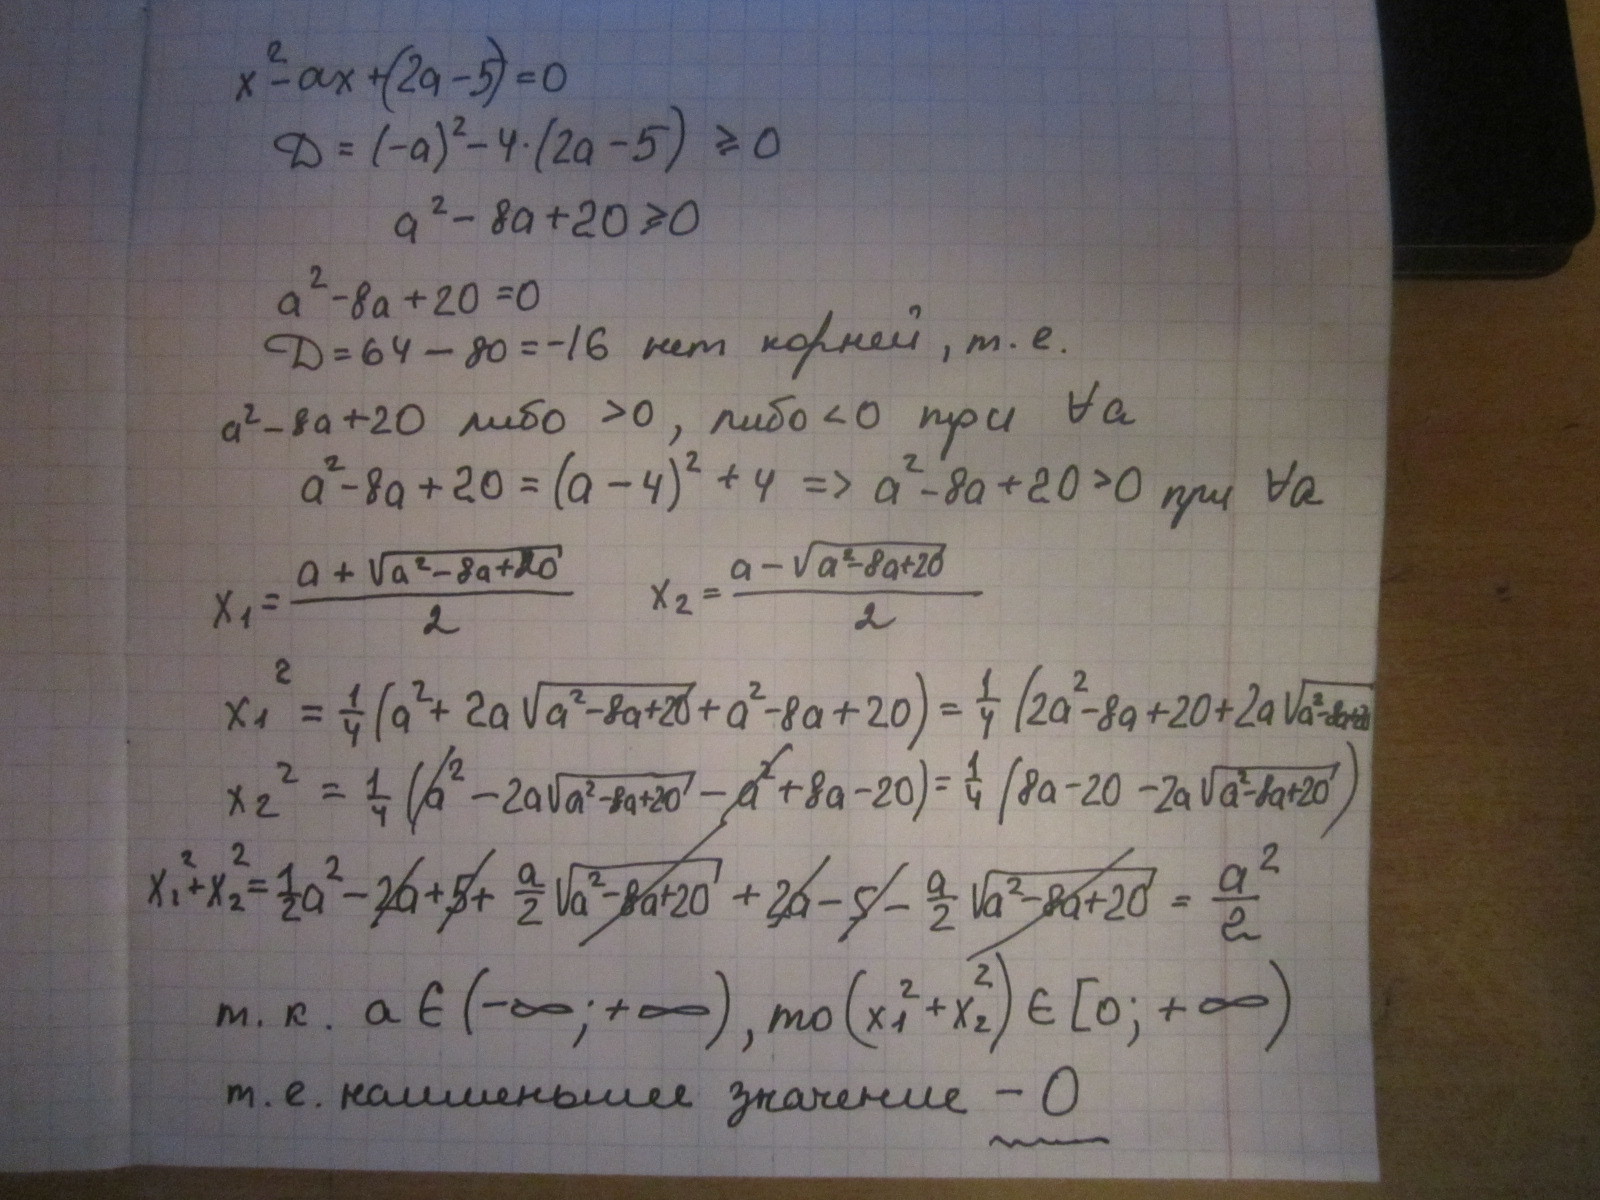 x² - ax + (2a - 5) = 0
D = (-a)² - 4·(2a - 5) ≥ 0
a² - 8a + 20 ≥ 0
a² - 8a + 20 = 0
D = 64 - 80 = -16 нет корней, т.е.
a² - 8a + 20 либо > 0, либо < 0 при ∀a
a² - 8a + 20 = (a - 4)² + 4 => a² - 8a + 20 > 0 при ∀a
x₁ = (a + √(a² - 8a + 20))/2   x₂ = (a - √(a² - 8a + 20))/2
x₁² = 1/4 (a² + 2a√(a² - 8a + 20) + a² - 8a + 20) = 1/4 (2a² - 8a + 20 + 2a√(a² - 8a + 20)
x₂² = 1/4 (a² - 2a√(a² - 8a + 20) - a² + 8a - 20) = 1/4 (8a - 20 - 2a√(a² - 8a + 20))
x₁² + x₂² = 1/2 a² - 2a + 5 + a/2 √(a² - 8a + 20) + 2a - 5 - a/2 √(a² - 8a + 20) = a²/2
т.к. a ∈ (-∞; +∞), то (x₁² + x₂²) ∈ [0; +∞)
т.е. наименьшее значение - 0